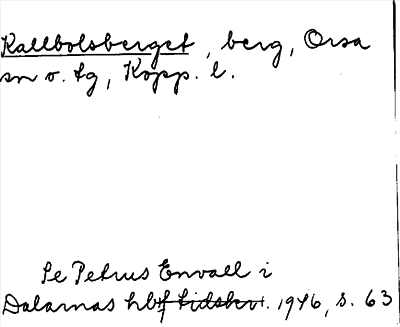 Kallbolsberget, berg, Orsa
sn o. tg, Kopp. l.
Se Petrus Envall i
Dalarnas hbf tidskr. 1946, s. 63